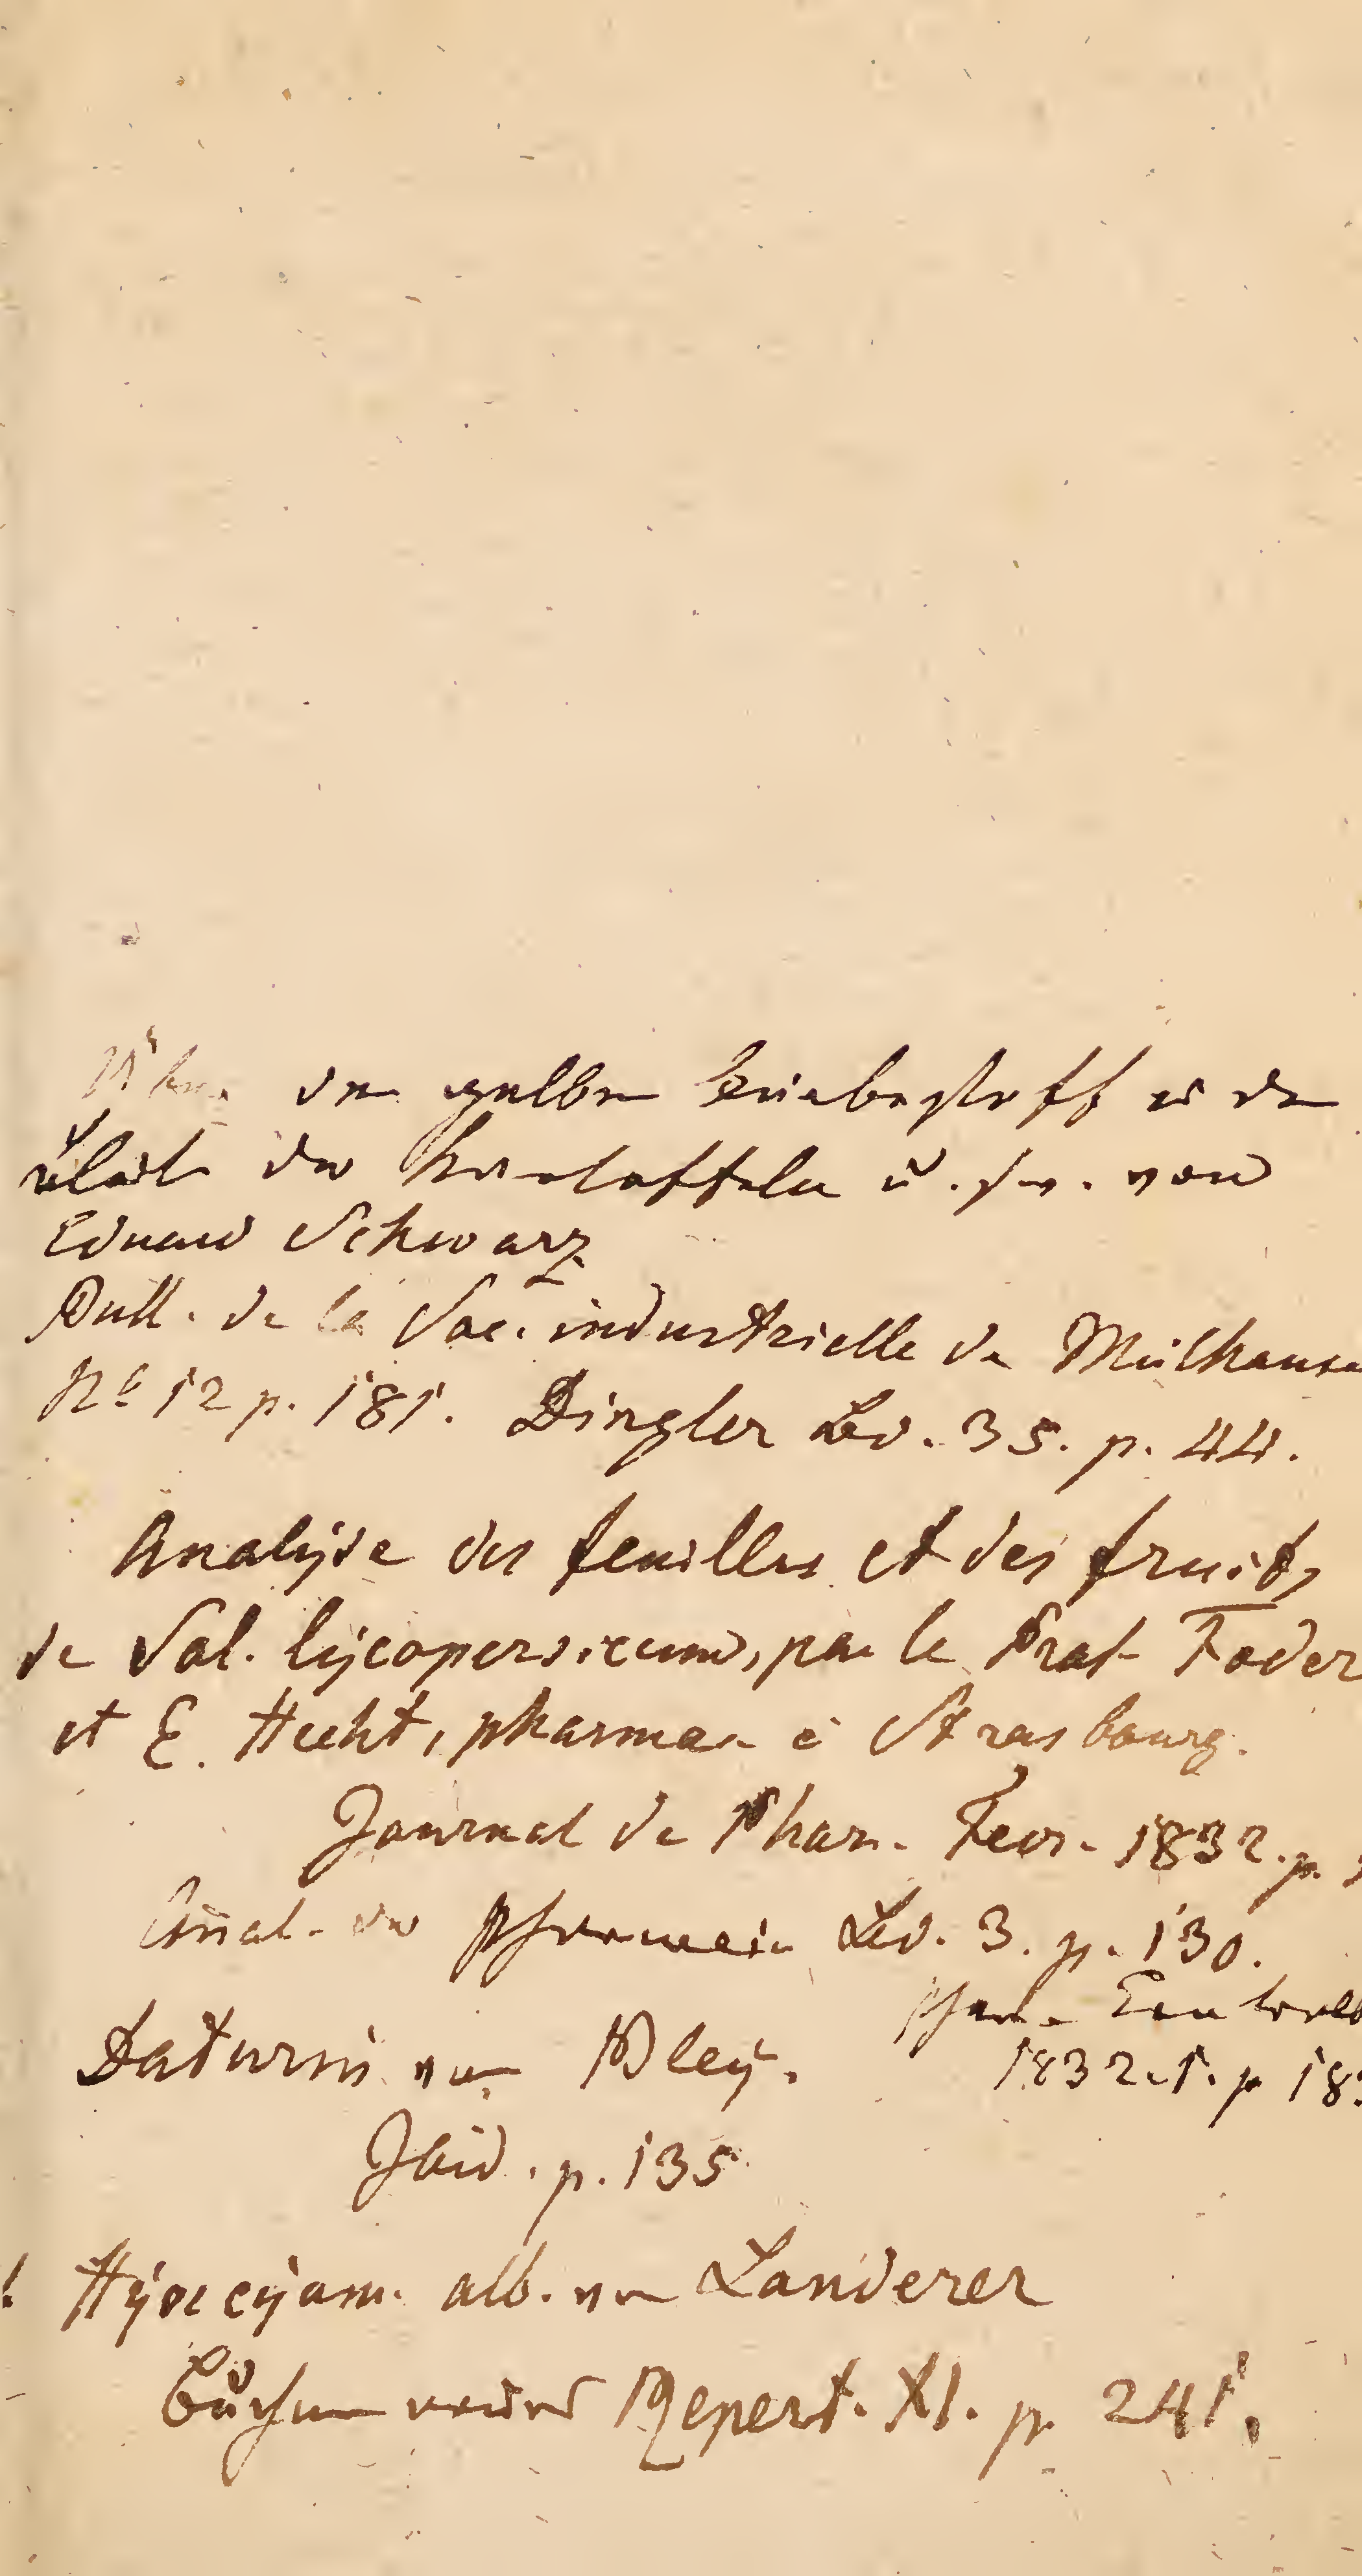 Über den gelben Farbestoff in der
Blüthe der Kartoffeln u. s. w. von
Eduard Schwarz
Bull. de la Soc. industrielle de Mülhause
No 12 p. 181. Dingler Bd. 35. p. 44.
Analyse des feuilles et des fruits
de Sol. lycopersicum, par le Prof Foder
et E. Hecht, pharmac à Strasbourg.
Journal de Phar. Fevr. 1832. p.
Annal. der Pharmacie Bd. 3. p. 130.
Phar. Centralb
Daturin von Bley.
1832. 1. p 18
Ibid. p. 135
Hyoscyam. alb. von Landerer
Buchner neues Repert. XI. p. 241.